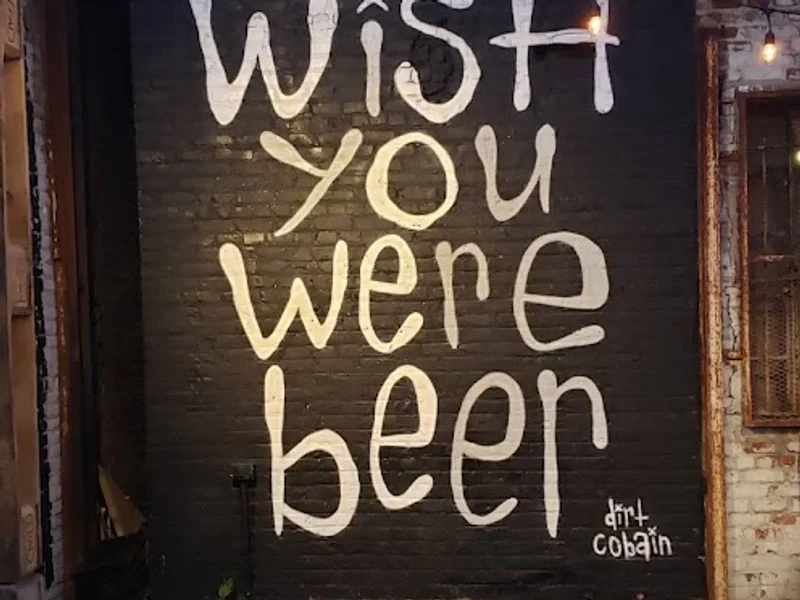 WiSH
you
were
beer
dirt
cobain